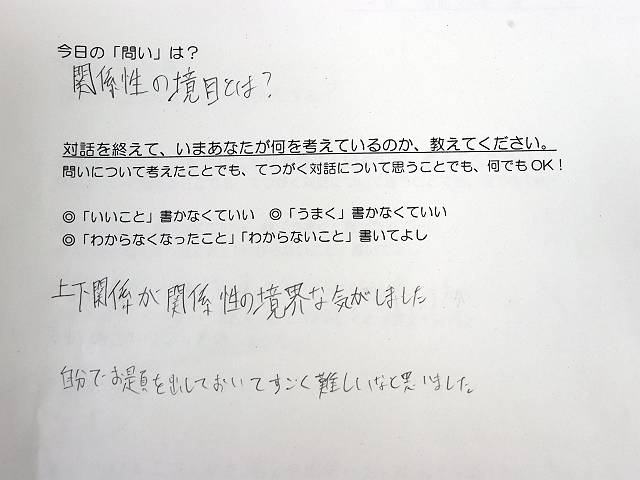 今日の「問い」は？
関係性の境目とは？
対話を終えて、いまあなたが何を考えているのか、教えてください。
問いについて考えたことでも、てつがく対話について思うことでも、何でもOK！
◎「いいこと」書かなくていい　◎「うまく」書かなくていい
◎「わからなくなったこと」「わからないこと」書いてよし
上下関係が関係性の境界な気がしました
自分でお題を出しておいてすごく難しいなと思いました